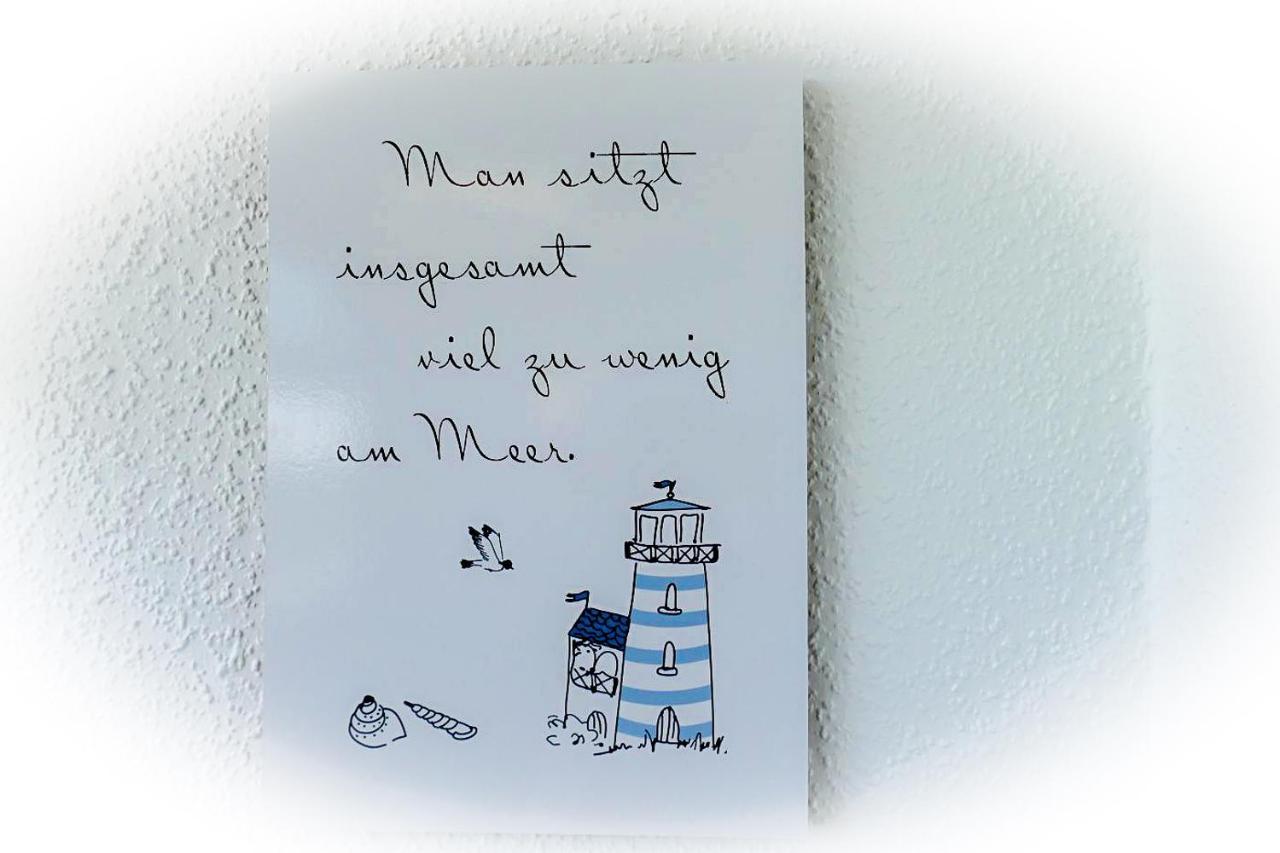 Man sitzt
insgesamt
viel zu wenig
am Meer.